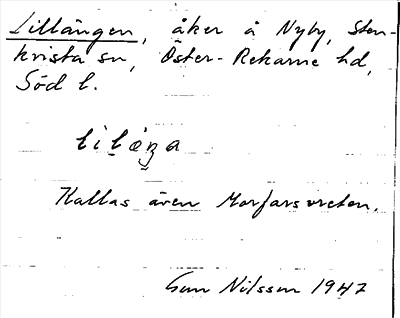 Lillängen, åker å Nyby, Sten-
kvista sn, Öster-Rekarne hd,
Söd l.
Kallas även Morfarsvreten.
Gun Nilsson 1947